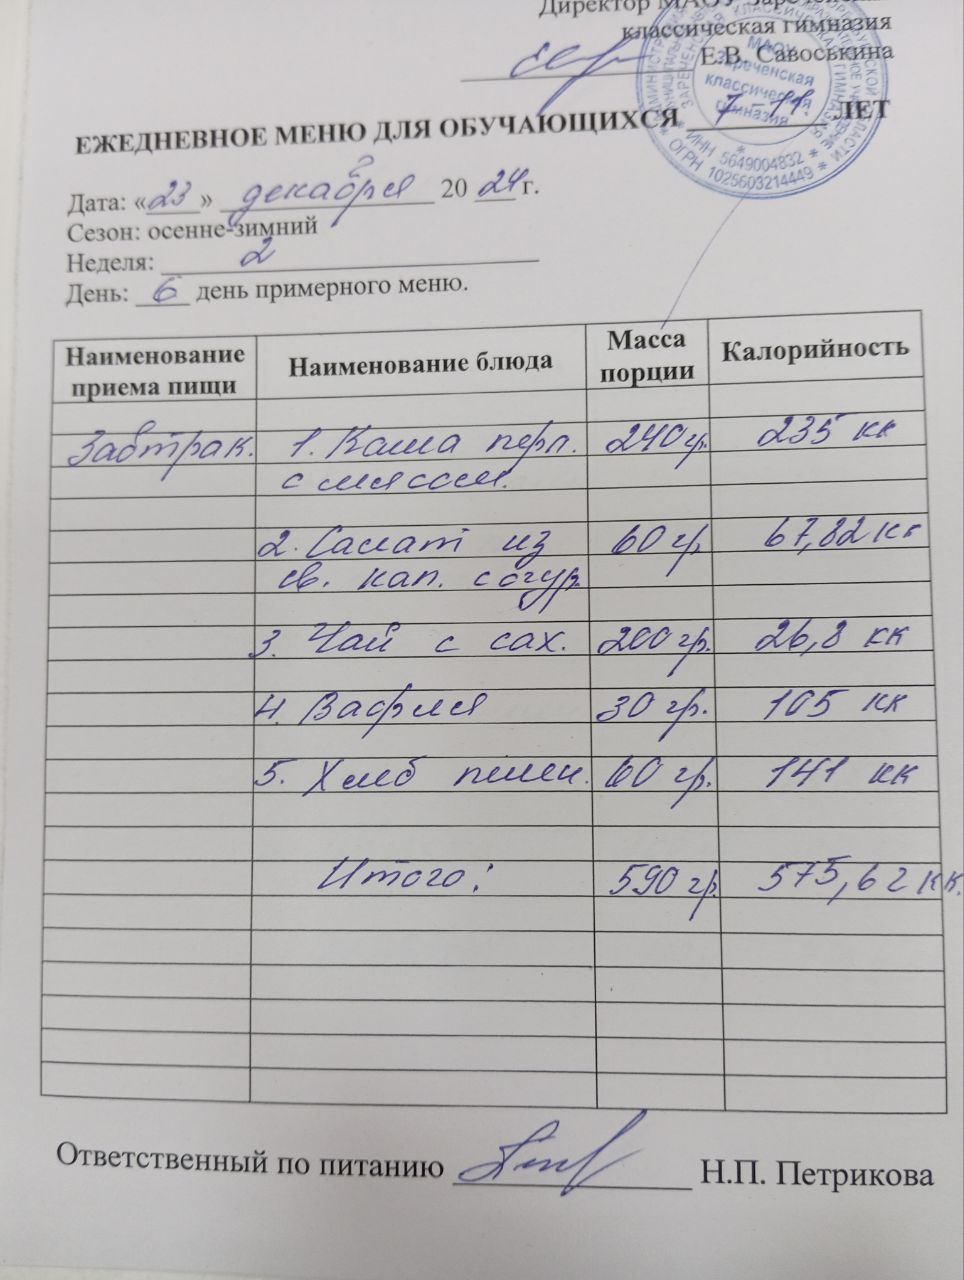 Директор МАОУ Зареченская
классическая гимназия
Е.В. Савоськина
МАОУ
Зареченская
классическая
гимназия
* ИНН 5649004832 *
* ОГРН 1025603214449 *
ЕЖЕДНЕВНОЕ МЕНЮ ДЛЯ ОБУЧАЮЩИХСЯ 7-11 ЛЕТ
Дата: «23» декабря 2024 г.
Сезон: осенне-зимний
Неделя: 2
День: 6 день примерного меню.
Наименование приема пищи Наименование блюда Масса порции Калорийность
Завтрак. 1. Каша перл. 240 гр. 235 кк
с мясом.
2. Салат из 60 гр. 67,82 кк
св. кап. с огур.
3. Чай с сах. 200 гр. 26,8 кк
4. Вафля 30 гр. 105 кк
5. Хлеб пшен. 60 гр. 141 кк
Итого: 590 гр. 575,62 кк.
Ответственный по питанию Н.П. Петрикова